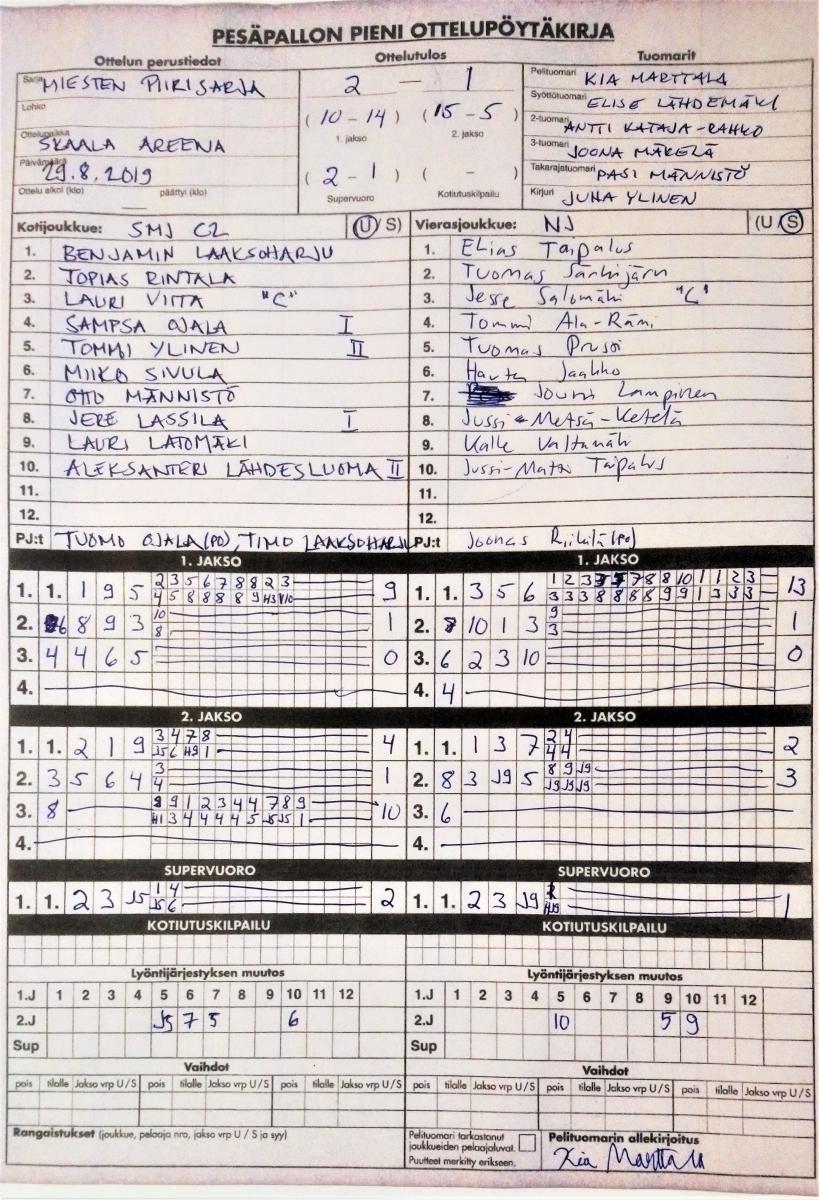 PESÄPALLON PIENI OTTELUPÖYTÄKIRJA
Ottelun perustiedot
Sarja MIESTEN PIIRISARJA
Lohko
Ottelupaikka SKAALA AREENA
Päivämäärä 29.8.2019
Ottelu alkoi (klo) päättyi (klo)
Ottelutulos
2 — 1
(10 - 14) (15 - 5)
1. jakso 2. jakso
(2 - 1) ( - )
Supervuoro Kotiutuskilpailu
Tuomarit
Pelituomari KIA MARTTALA
Syöttötuomari ELISE LÄHDEMÄKI
2-tuomari ANTTI KATAJA-RAHKO
3-tuomari JOONA MÄKELÄ
Takarajatuomari PASI MÄNNISTÖ
Kirjuri JUHA YLINEN
Kotijoukkue: SMJ C2 (U/S)
1. BENJAMIN LAAKSOHARJU
2. TOPIAS RINTALA
3. LAURI VIITA "C"
4. SAMPSA OJALA I
5. TOMMI YLINEN II
6. MIIKO SIVULA
7. OTTO MÄNNISTÖ
8. JERE LASSILA I
9. LAURI LATOMÄKI
10. ALEKSANTERI LÄHDESLUOMA II
11.
12.
PJ:t TUOMO OJALA (PO), TIMO LAAKSOHARJU
Vierasjoukkue: NJ (U/S)
1. Elias Taipalus
2. Tuomas Särkijärvi
3. Jesse Salomäki "C"
4. Tommi Ala-Rämi
5. Tuomas Prusi
6. Jaakko
7. Jouni Lampinen
8. Jussi Metsä-Ketelä
9. Kalle Valtamäki
10. Jussi-Matti Taipalus
11.
12.
PJ:t Joonas Riikilä (PO)
1. JAKSO
1. 1. 1 9 5 2 3 5 6 7 8 8 2 3 9
4 5 8 8 8 8 9 H3 V10
2. 6 8 9 3 10 1
8
3. 4 4 6 5 0
4.
1. JAKSO
1. 1. 3 5 6 1 2 3 7 7 8 8 10 1 1 2 3 13
3 3 3 8 8 8 8 9 9 1 3 3 3
2. 7 10 1 3 9 1
3
3. 6 2 3 10 0
4. 4
2. JAKSO
1. 1. 2 1 9 3 4 7 8 4
J5 6 H9 1
2. 3 5 6 4 3 1
4
3. 8 8 9 1 2 3 4 4 7 8 9 10
H1 3 4 4 4 4 5 J5 J5 1
4.
2. JAKSO
1. 1. 1 3 7 2 4 2
4 4
2. 8 3 J9 5 8 9 J9 3
J9 J9 J9
3. 6
4.
SUPERVUORO
1. 1. 2 3 J5 1 4 2
J5 6
SUPERVUORO
1. 1. 2 3 J9 1
HJ9
KOTIUTUSKILPAILU
KOTIUTUSKILPAILU
Lyöntijärjestyksen muutos
1.J 1 2 3 4 5 6 7 8 9 10 11 12
2.J J5 7 5 6
Sup
Lyöntijärjestyksen muutos
1.J 1 2 3 4 5 6 7 8 9 10 11 12
2.J 10 5 9
Sup
Vaihdot
pois tilalle Jakso vrp U/S pois tilalle Jakso vrp U/S pois tilalle Jakso vrp U/S
Vaihdot
pois tilalle Jakso vrp U/S pois tilalle Jakso vrp U/S pois tilalle Jakso vrp U/S
Rangaistukset (joukkue, pelaaja nro, jakso vrp U / S ja syy)
Pelituomari tarkastanut
joukkueiden pelaajaluvat.
Puutteet merkitty erikseen.
Pelituomarin allekirjoitus
Kia Marttala